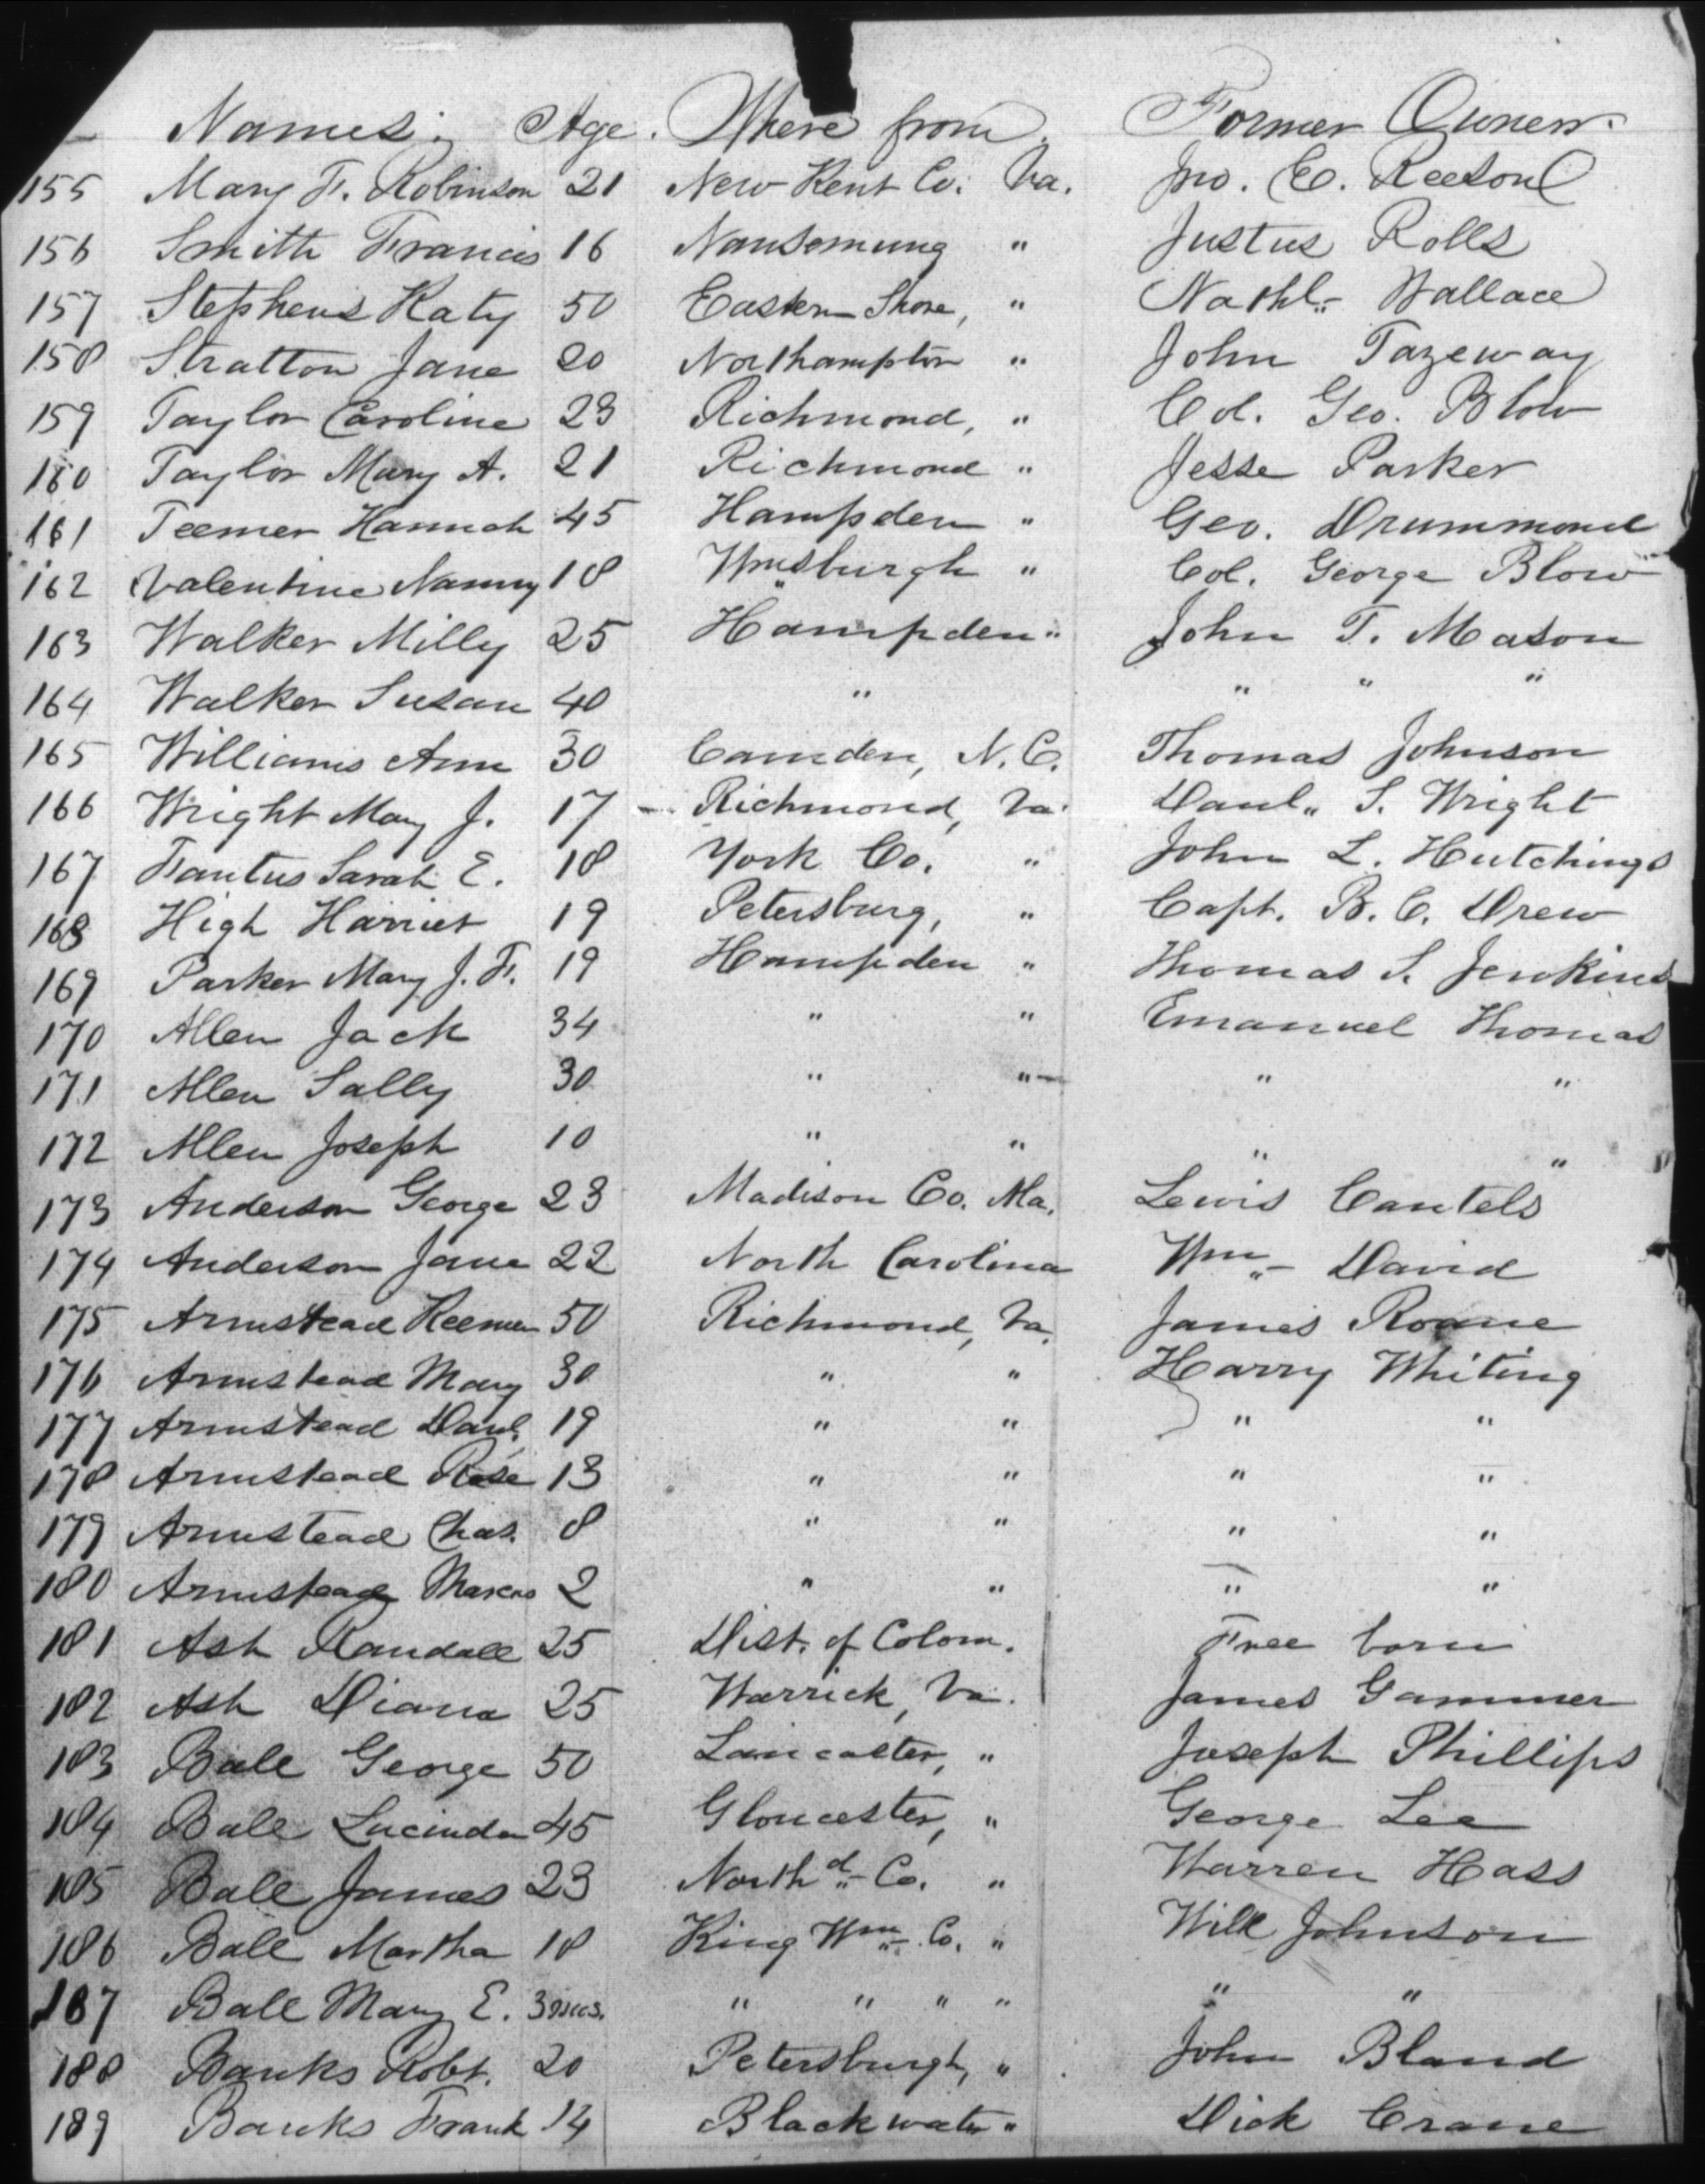 Names. Age. Where from. Former Owners.
155 Mary F. Robinson 21 New Kent Co. Va. Jno. C.
156 Smith Francis 16 Nansemung " Justus Rolls
157 Stephens Katy 50 Eastern Shore, " Nathl. Wallace
158 Stratton Jane 20 Northampton " John Tazeway
159 Taylor Caroline 23 Richmond, " Col. Geo. Blow
160 Taylor Mary A. 21 Richmond " Jesse Parker
161 Teemer Hannah 45 Hampden " Geo. Drummond
162 Valentine Nanny 18 Wmsburgh " Col. George Blow
163 Walker Milly 25 Hampden " John T. Mason
164 Walker Susan 40 " " " "
165 Williams Ann 30 Camden, N.C. Thomas Johnson
166 Wright Mary J. 17 Richmond, Va. Danl. S. Wright
167 Fantus Sarah E. 18 York Co. " John L. Hutchings
168 High Harriet 19 Petersburg, " Capt. B. C. Drew
169 Parker Mary J. F. 19 Hampden " Thomas S. Jenkins
170 Allen Jack 34 " " Emanuel Thomas
171 Allen Sally 30 " " " "
172 Allen Joseph 10 " " " "
173 Anderson George 23 Madison Co. Lewis Cantels
174 Anderson Jane 22 North Carolina Wm David
175 Armstead 50 Richmond, Va. James Roane
176 Armstead Mary 30 " " Harry Whiting
177 Armstead Danl. 19 " " " "
178 Armstead Rose 13 " " " "
179 Armstead Chas. 8 " " " "
180 Armstead Marcus 2 " " " "
181 Ash Randall 25 Dist. of Colom. Free born
182 Ash Diana 25 Warrick, Va. James Gammer
183 Ball George 50 Lancaster, " Joseph Phillips
184 Ball Lucinda 45 Gloucester, " George Lee
185 Ball James 23 Northd Co. " Warren Hass
186 Ball Martha 18 King Wm Co. " Will Johnson
187 Ball Mary E. 3 mos. " " " " " "
188 Banks Robt. 20 Petersburgh, " John Bland
189 Banks Frank 14 Blackwater " Dick Crane